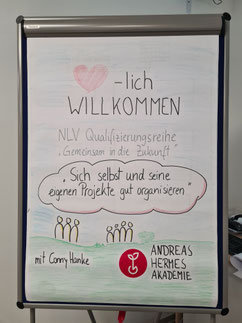 -lich
WILLKOMMEN
NLV Qualifizierungsreihe
„Gemeinsam in die Zukunft"
„Sich selbst und seine
eigenen Projekte gut organisieren"
mit Conny Hanke
ANDREAS
HERMES
AKADEMIE